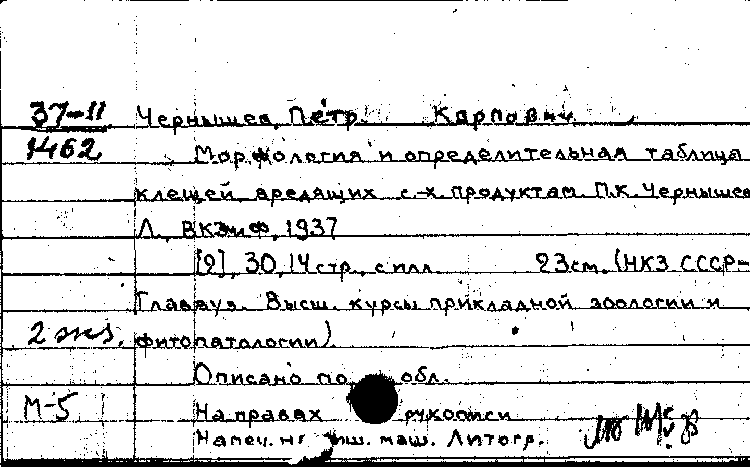 37-11 Чернышев, Пётр Карпович
1462 Морфология и определительная таблица
клещей, вредящих с.-х. продуктам. П.К. Чернышев
Л., ВКЗиФ, 1937
[2], 30, 14 стр., с илл. 23 см. (НКЗ СССР-
Главвуз. Высш. курсы прикладной зоологии и
2 экз. фитопатологии)
Описано по обл.
М-5 На правах рукописи
Напеч. на пиш. маш. Литогр.